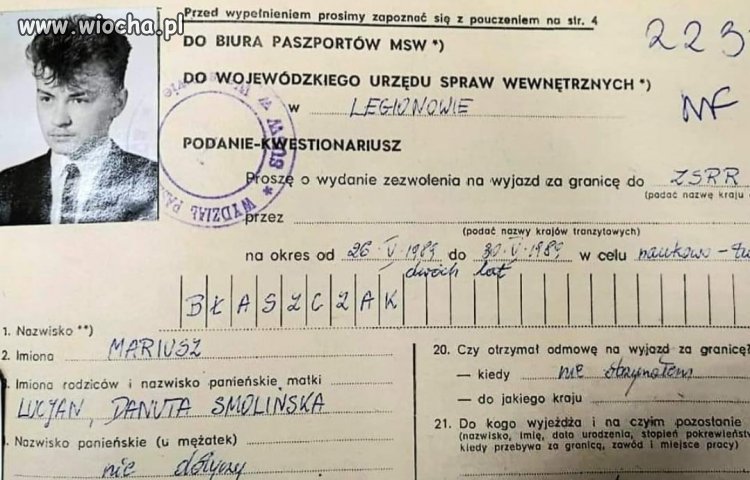 www.wiocha.pl
Przed wypełnieniem prosimy zapoznać się z pouczeniem na str. 4
DO BIURA PASZPORTÓW MSW *)
DO WOJEWÓDZKIEGO URZĘDU SPRAW WEWNĘTRZNYCH *)
w LEGIONOWIE
223
NF
PODANIE-KWESTIONARIUSZ
Proszę o wydanie zezwolenia na wyjazd za granicę do ZSRR
(podać nazwę kraju
przez
(podać nazwy krajów tranzytowych)
na okres od 26. V. 1989 do 30. V. 1989 w celu naukowo-tu
dwóch lat
BŁASZCZAK
1. Nazwisko **)
2. Imiona MARIUSZ
Imiona rodziców i nazwisko panieńskie matki
LUCJAN, DANUTA SMOLIŃSKA
Nazwisko panieńskie (u mężatek)
nie dotyczy
20. Czy otrzymał odmowę na wyjazd za granicę
— kiedy nie otrzymałem
— do jakiego kraju
21. Do kogo wyjeżdża i na czyim pozostanie
(nazwisko, imię, data urodzenia, stopień pokrewieńst
kiedy przebywa za granicą, zawód i miejsce pracy)